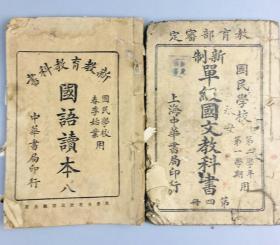 新教育教科書
國民學校用
春季始業
國語讀本 八
中華書局印行
教育部審定
新制
單級國文教科書
國民學校
第一學期
第四冊
上海中華書局印行